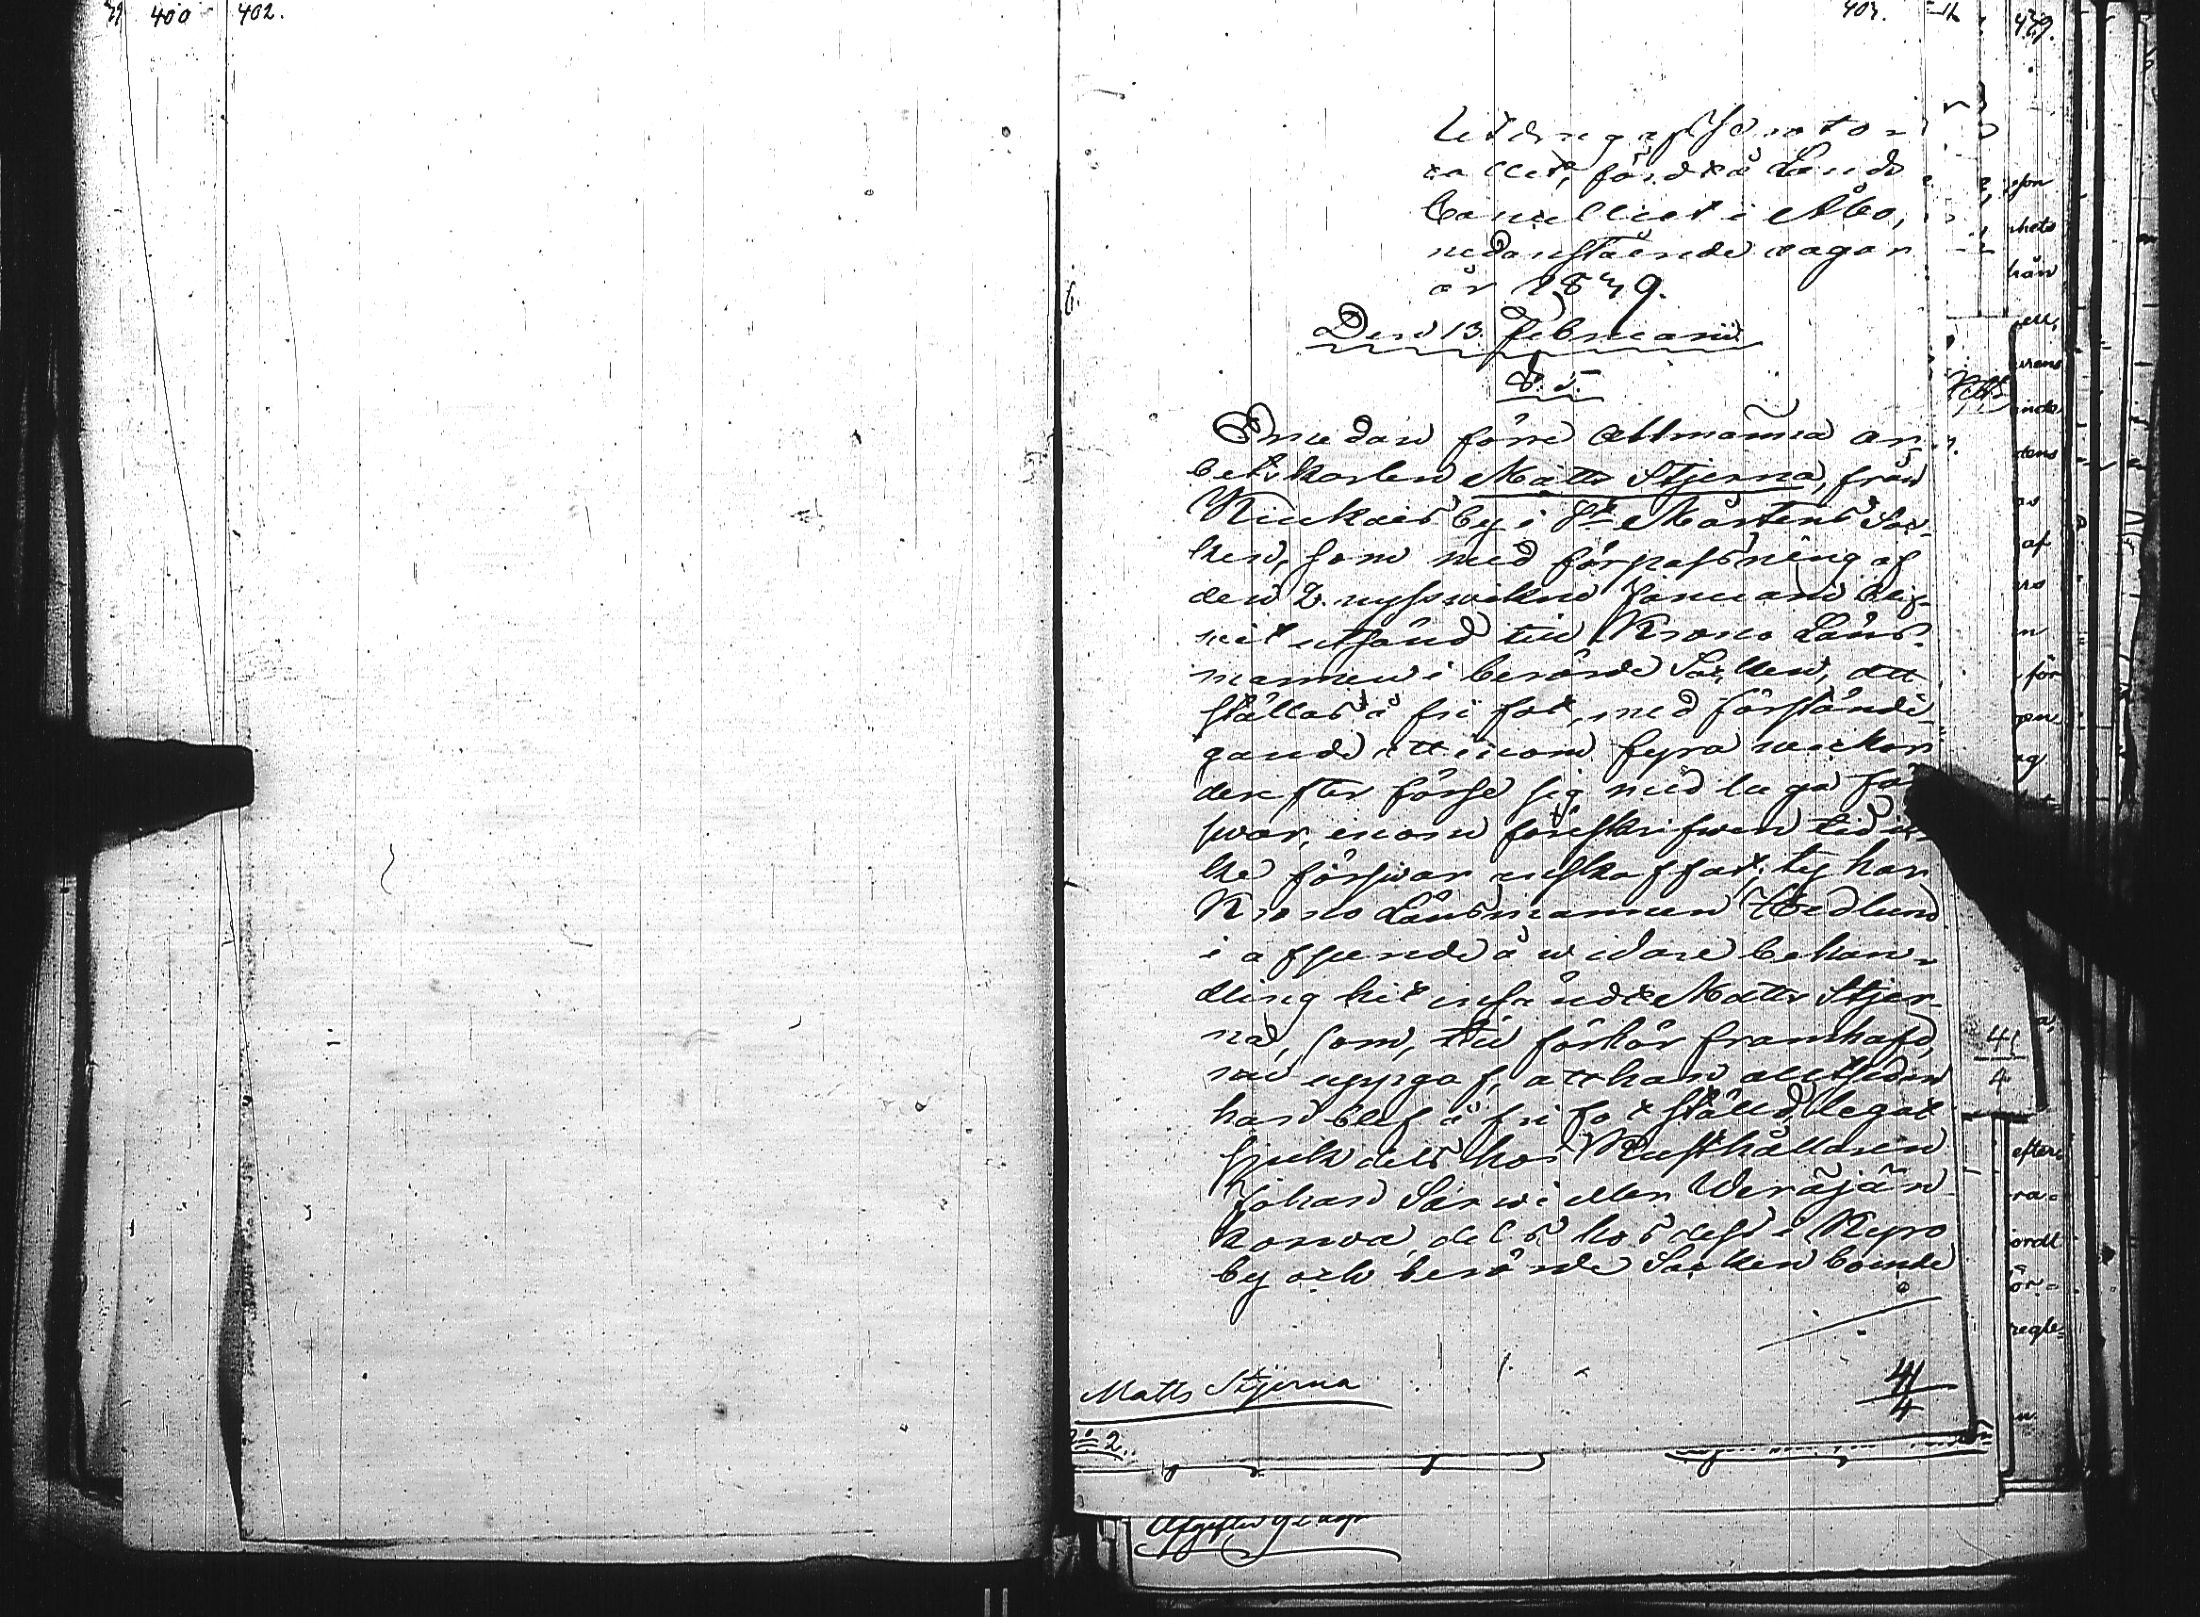 400
402.
403.
Utdrag af Proto-
collet, fördt å Lands
Cancelliet i Åbo,
nedanstående dagar
år 1839.
Den 13 Februarii
§. 5.
Emedan förre Allmänna ar-
betskarlen Matts Stjerna, från
by i S:t Mårtens Soc-
ken, som med förpassning af
den 2. nysswikne Januarii blif-
wit utsänd till Krono Läns-
mannen i berörde Socken, att
ställas å fri fot, med förständi-
gande att inom fyra weckor
derefter förse sig med laga för-
swar, inom föreskrifwen tid ic-
ke försvar anskaffat; ty har
Krono Länsmannen Hedlund
i afseende å widare behan-
dling hit insändt Matts Stjer-
na, som, till förhör framhafd,
nu uppgaf, att han alltsedan
han blef å fri fot ställd, legat
sjuk dels hos Rusthållaren
Johan Sarwi eller Weräjän-
korwa, dels hos dess i Kyro
by och berörde Socken boende
Matts Stjerna
41
4
N:o 2.
41
4
för
af
efter